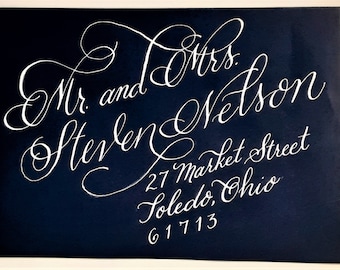 Mr. and Mrs.
Steven Nelson
27 Market Street
Toledo, Ohio
61713